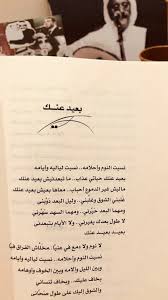 بعيد عنك
نسيت النوم وأحلامه .. نسيت لياليه وأيامه
بعيد عنك حياتي عذاب .. ما تبعدنيش بعيد عنك
ماليش غير الدموع أحباب .. معاها بعيش بعيد عنك
غلبني الشوق وغلبني .. وليل البعد دوبني
ومهما البعد حيرني .. ومهما السهد سهرني
لا طول بعدك يغيرني .. ولا الأيام بتبعدني
بعيد بعيد عنك
لا نوم ولا دمع في عنيا .. مخلاش الفراق فيا
نسيت النوم وأحلامه .. نسيت لياليه وأيامه
وبين الليل وآلامه وبين الخوف وأوهامه
بخاف عليك .. وبخاف تنساني
والشوق إليك على طول صحاني